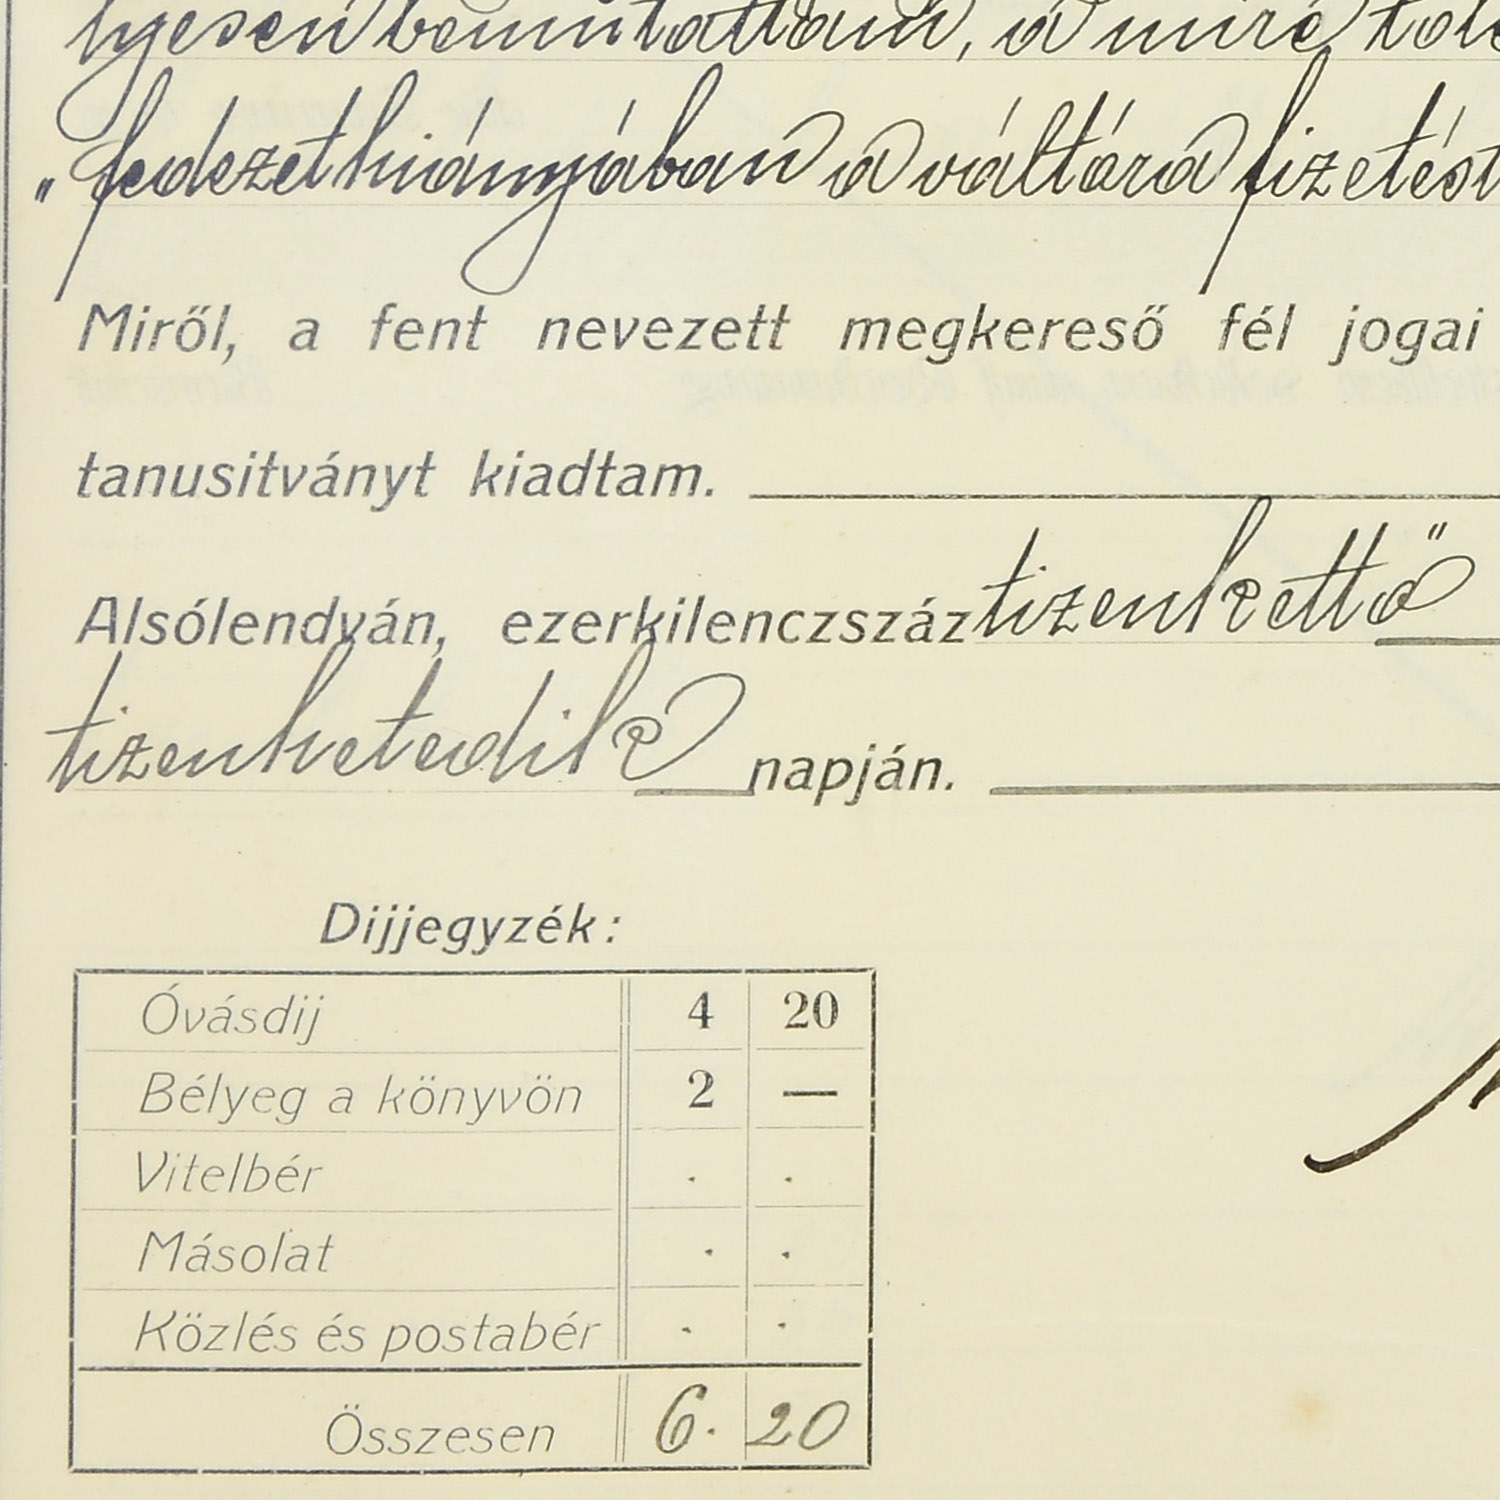 lyesen bemutattam, a mire
"fedezet hiányában a váltóra fizetést
Miről, a fent nevezett megkereső fél jogai
tanusitványt kiadtam.
Alsólendván, ezerkilenczszáz tizenkettő
tizenhetedik napján.
Dijjegyzék:
Óvásdij 4 20
Bélyeg a könyvön 2 —
Vitelbér . .
Másolat . .
Közlés és postabér . .
Összesen 6. 20